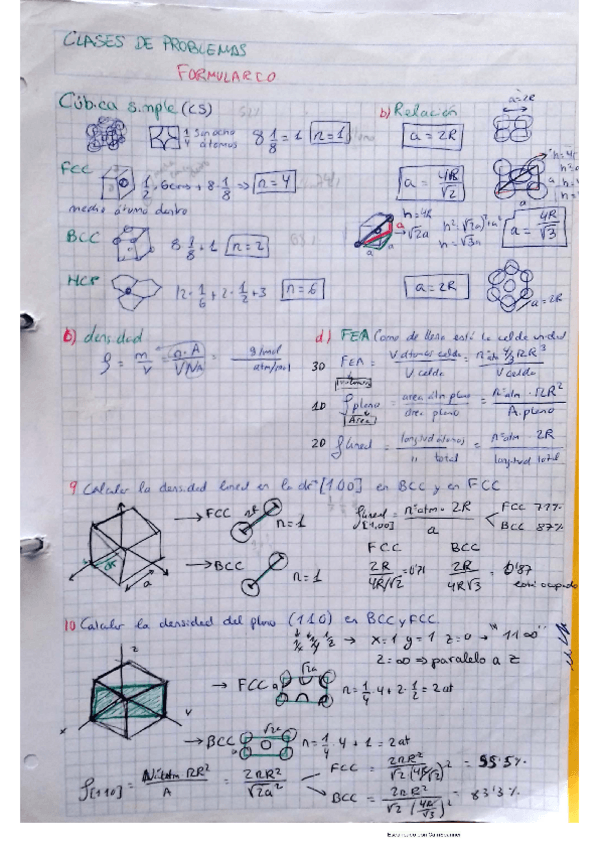 CLASES DE PROBLEMAS
FORMULARIO
Cúbica simple (CS)
1 Son ocho
4 átomos
8 1/8 = 1 n=1
b) Relación
a=2R
a = 2R
FCC
1/2 · 6 + 8 · 1/8 ⇒ n=4
medio átomo dentro
a = 4R/√2
BCC
8 1/8 + 1 n=2
h=4R
√2a
h = √3a
a = 4R/√3
HCP
12 · 1/6 + 2 · 1/2 + 3 n=6
a = 2R
a=2R
b) densidad
ρ = m/V = n·A/V NA = g/mol / atm/mol
d) FEA Como de llena está la celda unidad
3D FEA = V atomos celda / V celda = nºatm 4/3 πR³ / V celda
Volumen
1D ρ plano = area atm plano / area plano = nºatm · πR² / A. plano
Area
2D ρ lineal = longitud atomos / " total = nºatm 2R / longitud total
9 Calcular la densidad lineal en la dir [100] en BCC y en FCC
→ FCC 2R n=1
ρ lineal [1,00] = nºatm · 2R / a
FCC 71%
BCC 87%
a
→ BCC n=1
FCC BCC
2R / 4R/√2 = 0'71 2R / 4R√3 = 0'87
está ocupado
10 Calcular la densidad del plano (110) en BCC y FCC.
→ x=1 y=1 z=0 → "11∞"
z=∞ ⇒ paralelo a z
z
x
y
→ FCC a √2a n = 1/4 · 4 + 2 · 1/2 = 2at
→ BCC √2a n = 1/4 · 4 + 1 = 2at
ρ[110] = Nºatm πR² / A = 2πR² / √2a²
FCC = 2πR² / √2 (4R/√2)² = 55'5%
BCC = 2πR² / √2 (4R/√3)² = 83'3%
Escaneado con CamScanner